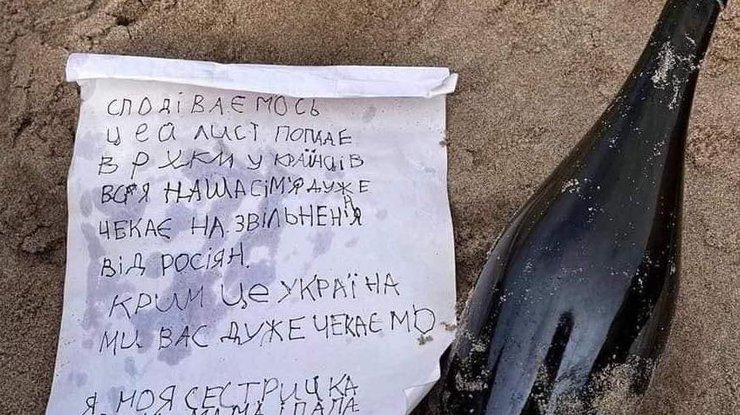 СПОДІВАЄМОСЬ
ЦЕЙ ЛИСТ ПОПАДЕ
В РУКИ УКРАЇНЦІВ
ВСЯ НАША СІМ'Я ДУЖЕ
ЧЕКАЄ НА ЗВІЛЬНЕННЯ
ВІД РОСІЯН.
КРИМ ЦЕ УКРАЇНА
МИ ВАС ДУЖЕ ЧЕКАЄМО
Я, МОЯ СЕСТРИЧКА
МАМА І ПАПА